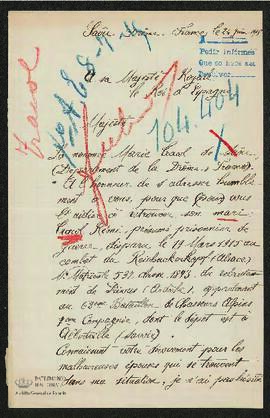 Drôme France le 24 juin 1915
Pedir informes
A sa Majesté Royale
le Roi d'Espagne
104.404
Majesté
La nommée Marie Tracol de
(Département de la Drôme, France)
A l'honneur de s'adresser humble
ment à vous, pour que vous
l'aidiez à retrouver son mari
Tracol Rémi, présumé prisonnier de
guerre, disparu le 19 Mars 1915 au
combat du Reichackerkopf (Alsace)
N° Matricule 537, classe 1893, du recrutement
de (Ardèche), appartenant
au Bataillon de Chasseurs Alpins
Compagnie, dont le dépôt est à
Albertville (Savoie)
Connaissant votre dévouement pour les
malheureuses épouses qui se trouvent
dans ma situation, je
Tracol
PATRIMONIO
NACIONAL